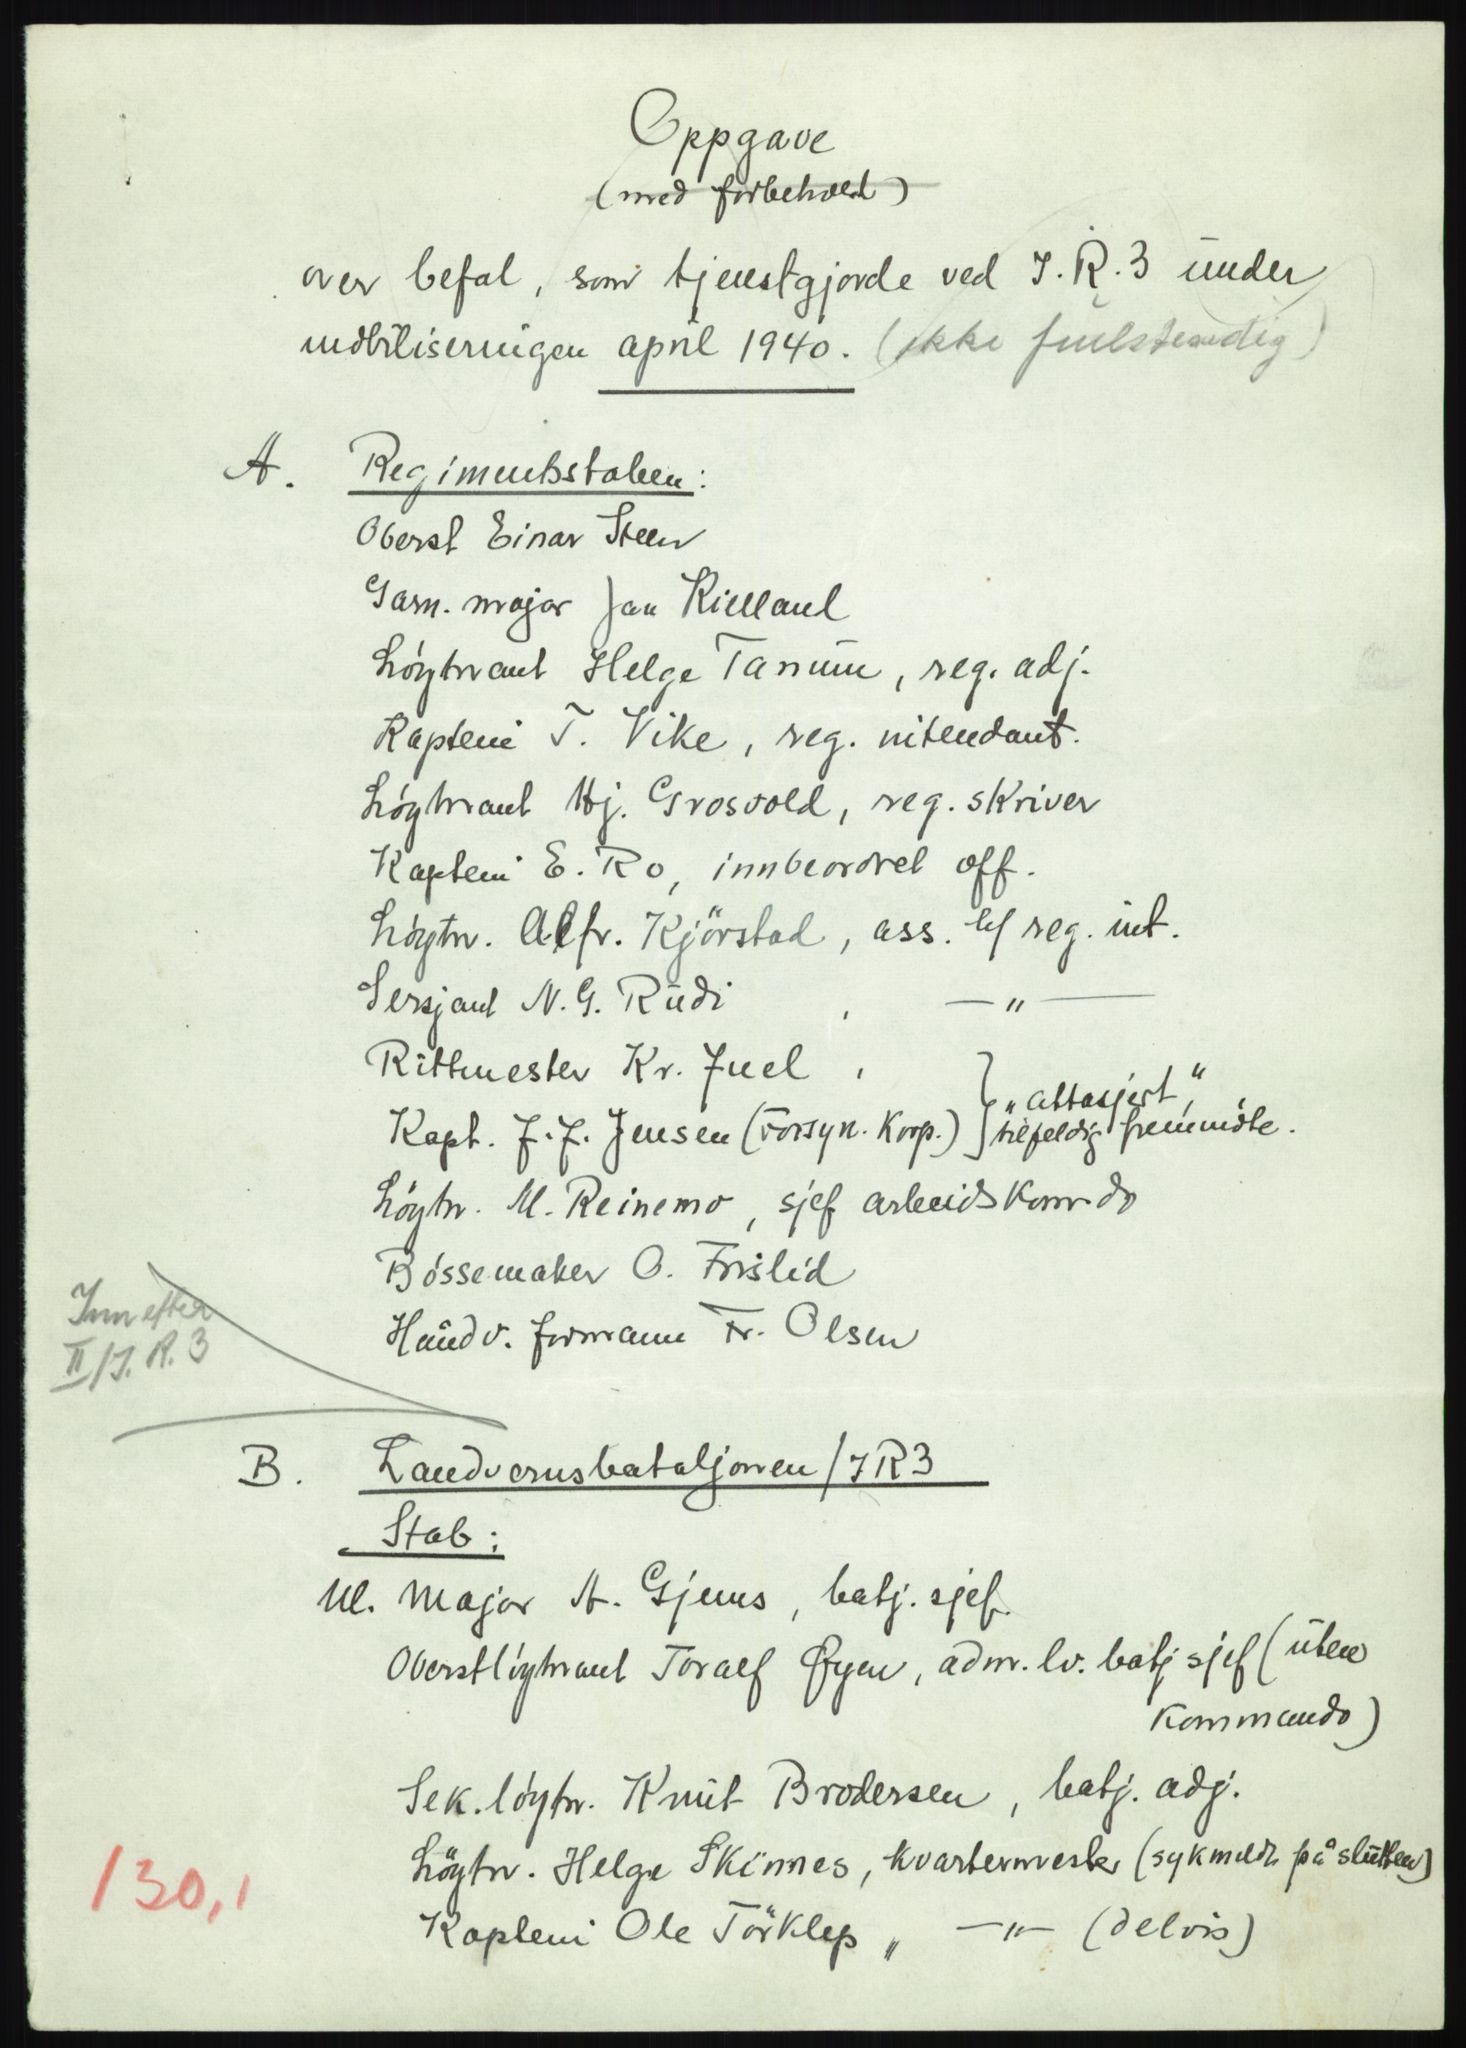 Oppgave
(med forbehold)
over befal, som tjenstgjorde ved I.R.3 under
mobiliseringen april 1940. (ikke fullstendig)
A. Regimentsstaben:
Oberst Einar Steen
Garn. major Jan Kielland
Löytnant Helge Tanum, reg. adj.
Kaptein T. Vike, reg. intendant.
Löytnant Hj. Grosvold, reg. skriver
Kaptein E. Ro, innbeordret off.
Löytn. Alfr. Kjörstad, ass. h/ reg. int.
Sersjant N. G. Rudi , —„—
Rittmester Kr. Juel ,
„attasjert“,
Kapt. J. J. Jensen (Forsyn. Korp.) tilfeldig fremmöte.
Löytn. M. Reinemo, sjef arbeidskomdo
Bössemaker O. Frislid
Håndv. formann Fr. Olsen
Inn efter
II/I.R.3
B. Landvernsbataljonen/IR3
Stab:
Ul. Major A. Gjems, batj. sjef.
Oberstlöytnant Toralf Øyen, adm. lv. batj sjef (uten
kommando)
Sek. löytn. Knut Brodersen, batj. adj.
Löytn. Helge Skinnes, kvartermester (sykmeldt på slutten)
Kaptein Ole Törklep „ —„— (delvis)
130,1